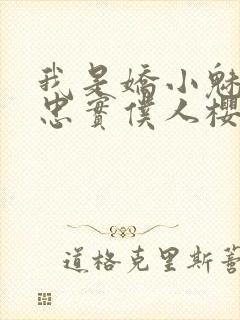 我是嬌小魅
忠實僕人櫻
道格克里斯蒂